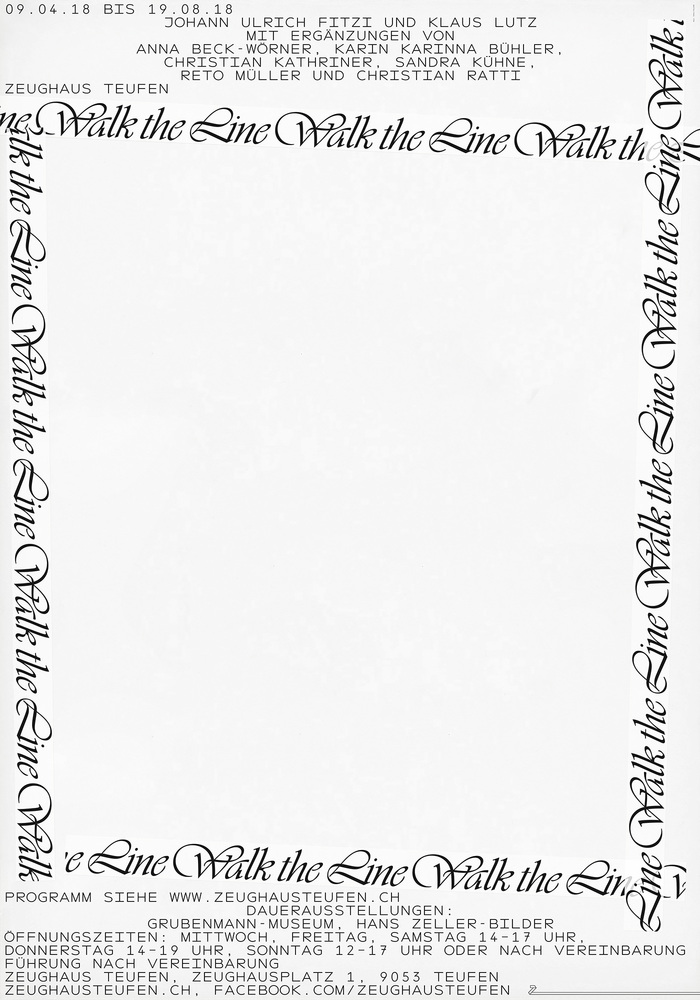 09.04.18 BIS 19.08.18
JOHANN ULRICH FITZI UND KLAUS LUTZ
MIT ERGÄNZUNGEN VON
ANNA BECK-WÖRNER, KARIN KARINNA BÜHLER,
CHRISTIAN KATHRINER, SANDRA KÜHNE,
RETO MÜLLER UND CHRISTIAN RATTI
ZEUGHAUS TEUFEN
ne Walk the Line Walk the Line Walk the
alk the Line Walk the Line Walk the Line Walk
Line Walk the Line Walk the Line Walk the Line Walk
e Line Walk the Line Walk the Line W
PROGRAMM SIEHE WWW.ZEUGHAUSTEUFEN.CH
DAUERAUSSTELLUNGEN:
GRUBENMANN-MUSEUM, HANS ZELLER-BILDER
ÖFFNUNGSZEITEN: MITTWOCH, FREITAG, SAMSTAG 14-17 UHR,
DONNERSTAG 14-19 UHR, SONNTAG 12-17 UHR ODER NACH VEREINBARUNG
FÜHRUNG NACH VEREINBARUNG
ZEUGHAUS TEUFEN, ZEUGHAUSPLATZ 1, 9053 TEUFEN
ZEUGHAUSTEUFEN.CH, FACEBOOK.COM/ZEUGHAUSTEUFEN